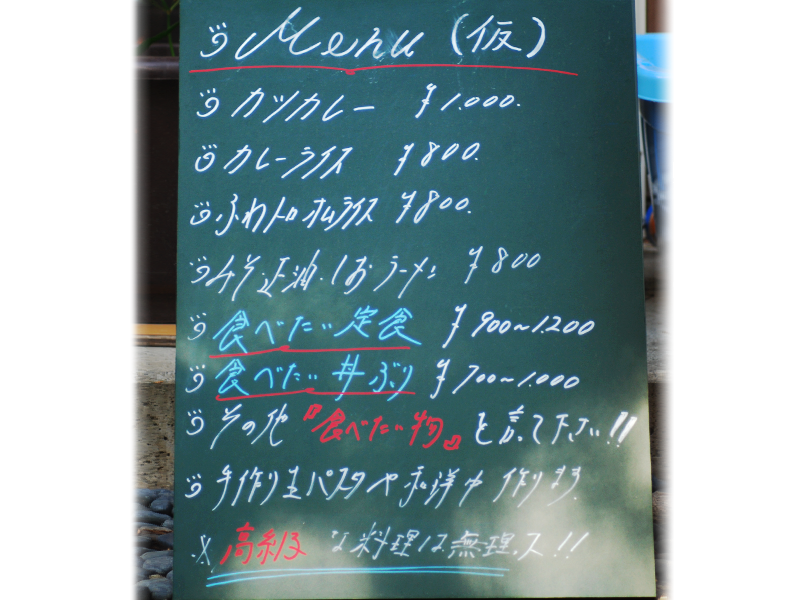 Menu (仮)
カツカレー ¥1.000.
カレーライス ¥800.
ふわトロオムライス ¥800.
みそ 正油.しお ラーメン ¥800
食べたい定食 ¥900~1.200
食べたい丼ぶり ¥700~1.000
その他『食べたい物』を言って下さい!!
手作り生パスタや和洋中 作ります
※高級な料理は無理.ス!!